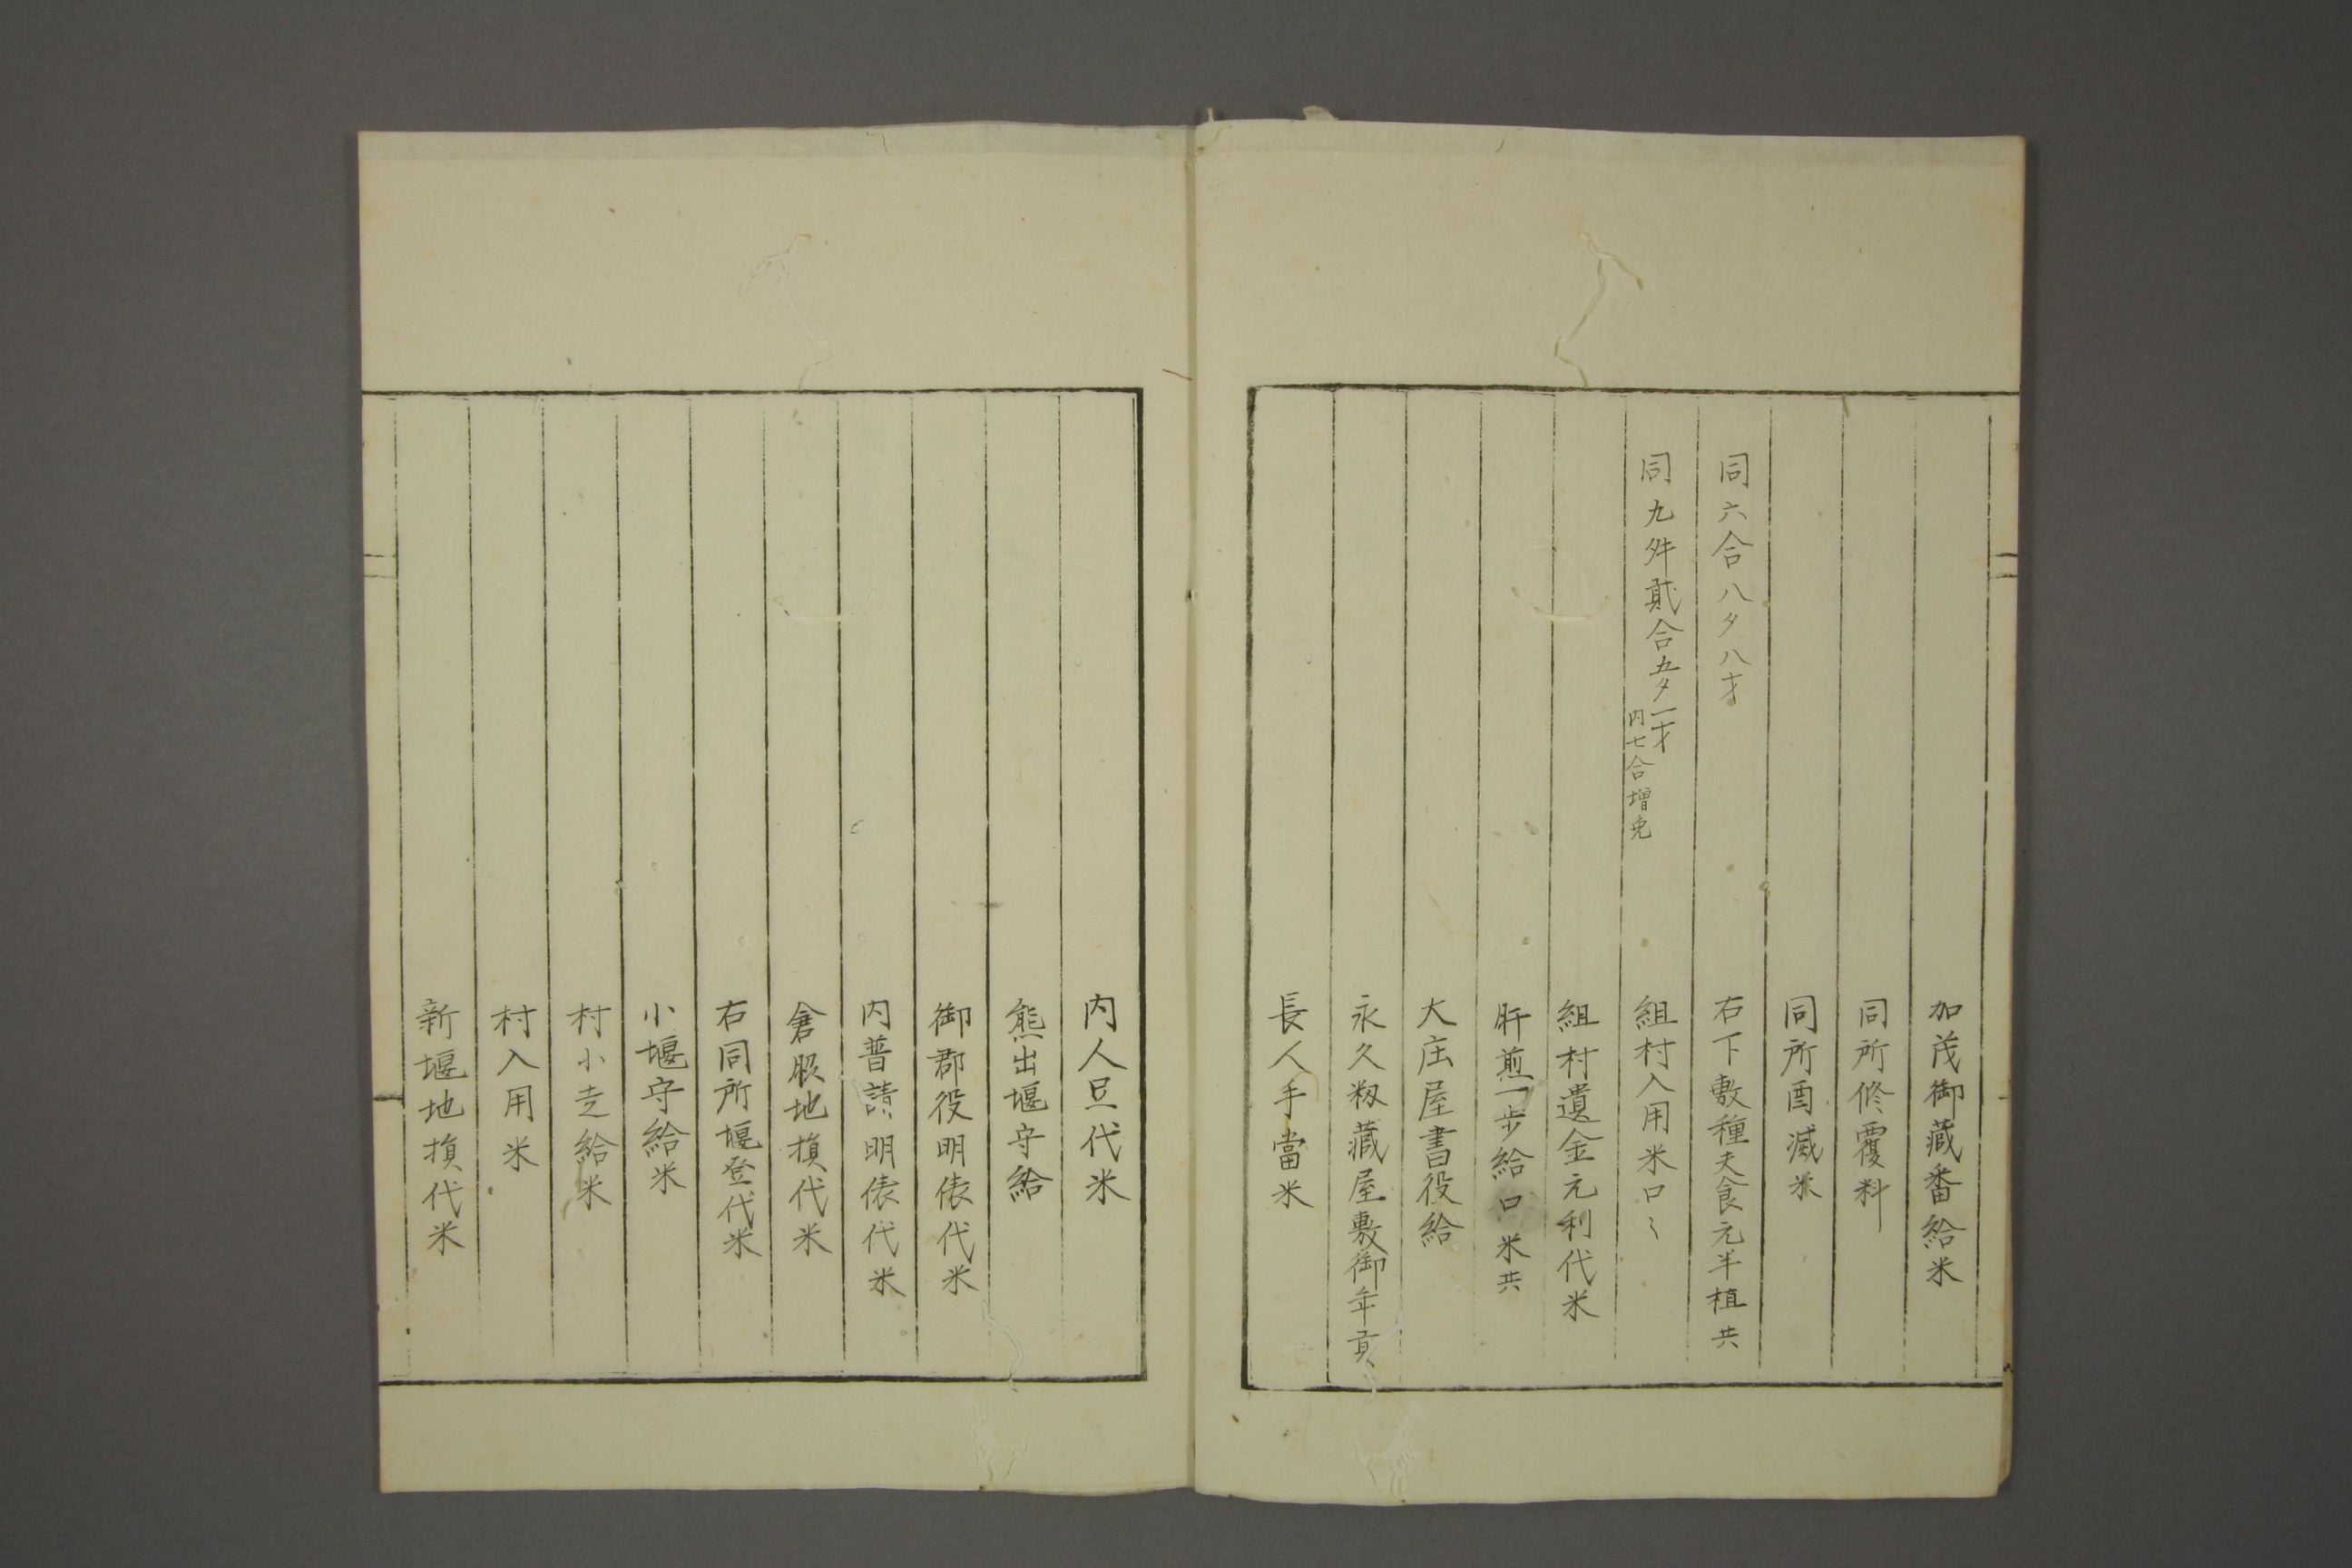 加茂御蔵番給米
同所修覆料
同所酉减米
同六合八夕八才 右下敷種夫食元半植共
同九舛貳合五夕一才 内七合増免 組村入用米口〻
組村遺金元利代米
肝煎一歩給口米共
大庄屋書役給
永久籾蔵屋敷御年貢
長人手當米
内人足代米
熊出堰守給
御郡役明俵代米
内普請明俵代米
倉服地損代米
右同所堰登代米
小堰守給米
村小走給米
村入用米
新堰地損代米